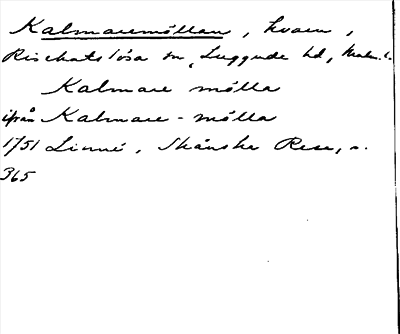 Kalmaremöllan, kvarn,
Rischatslösa sn, Luggude hd, Malm. l.
Kalmare mölla
ifrån Kalmare-mölla
1751 Linné, Skånska Resa, s.
365